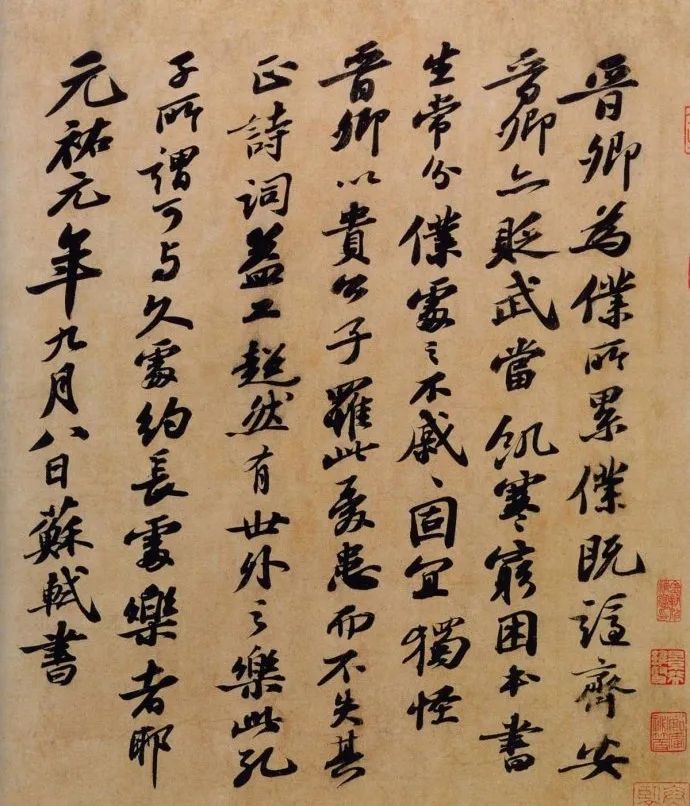 晋卿為僕所累僕既謫齊安
晋卿亦貶武當飢寒窮困本書
生常分僕處之不戚戚固宜獨怪
晋卿以貴公子罹此憂患而不失其
正詩詞益工超然有世外之樂此孔
子所謂可與久處約長處樂者耶
元祐元年九月八日蘇軾書